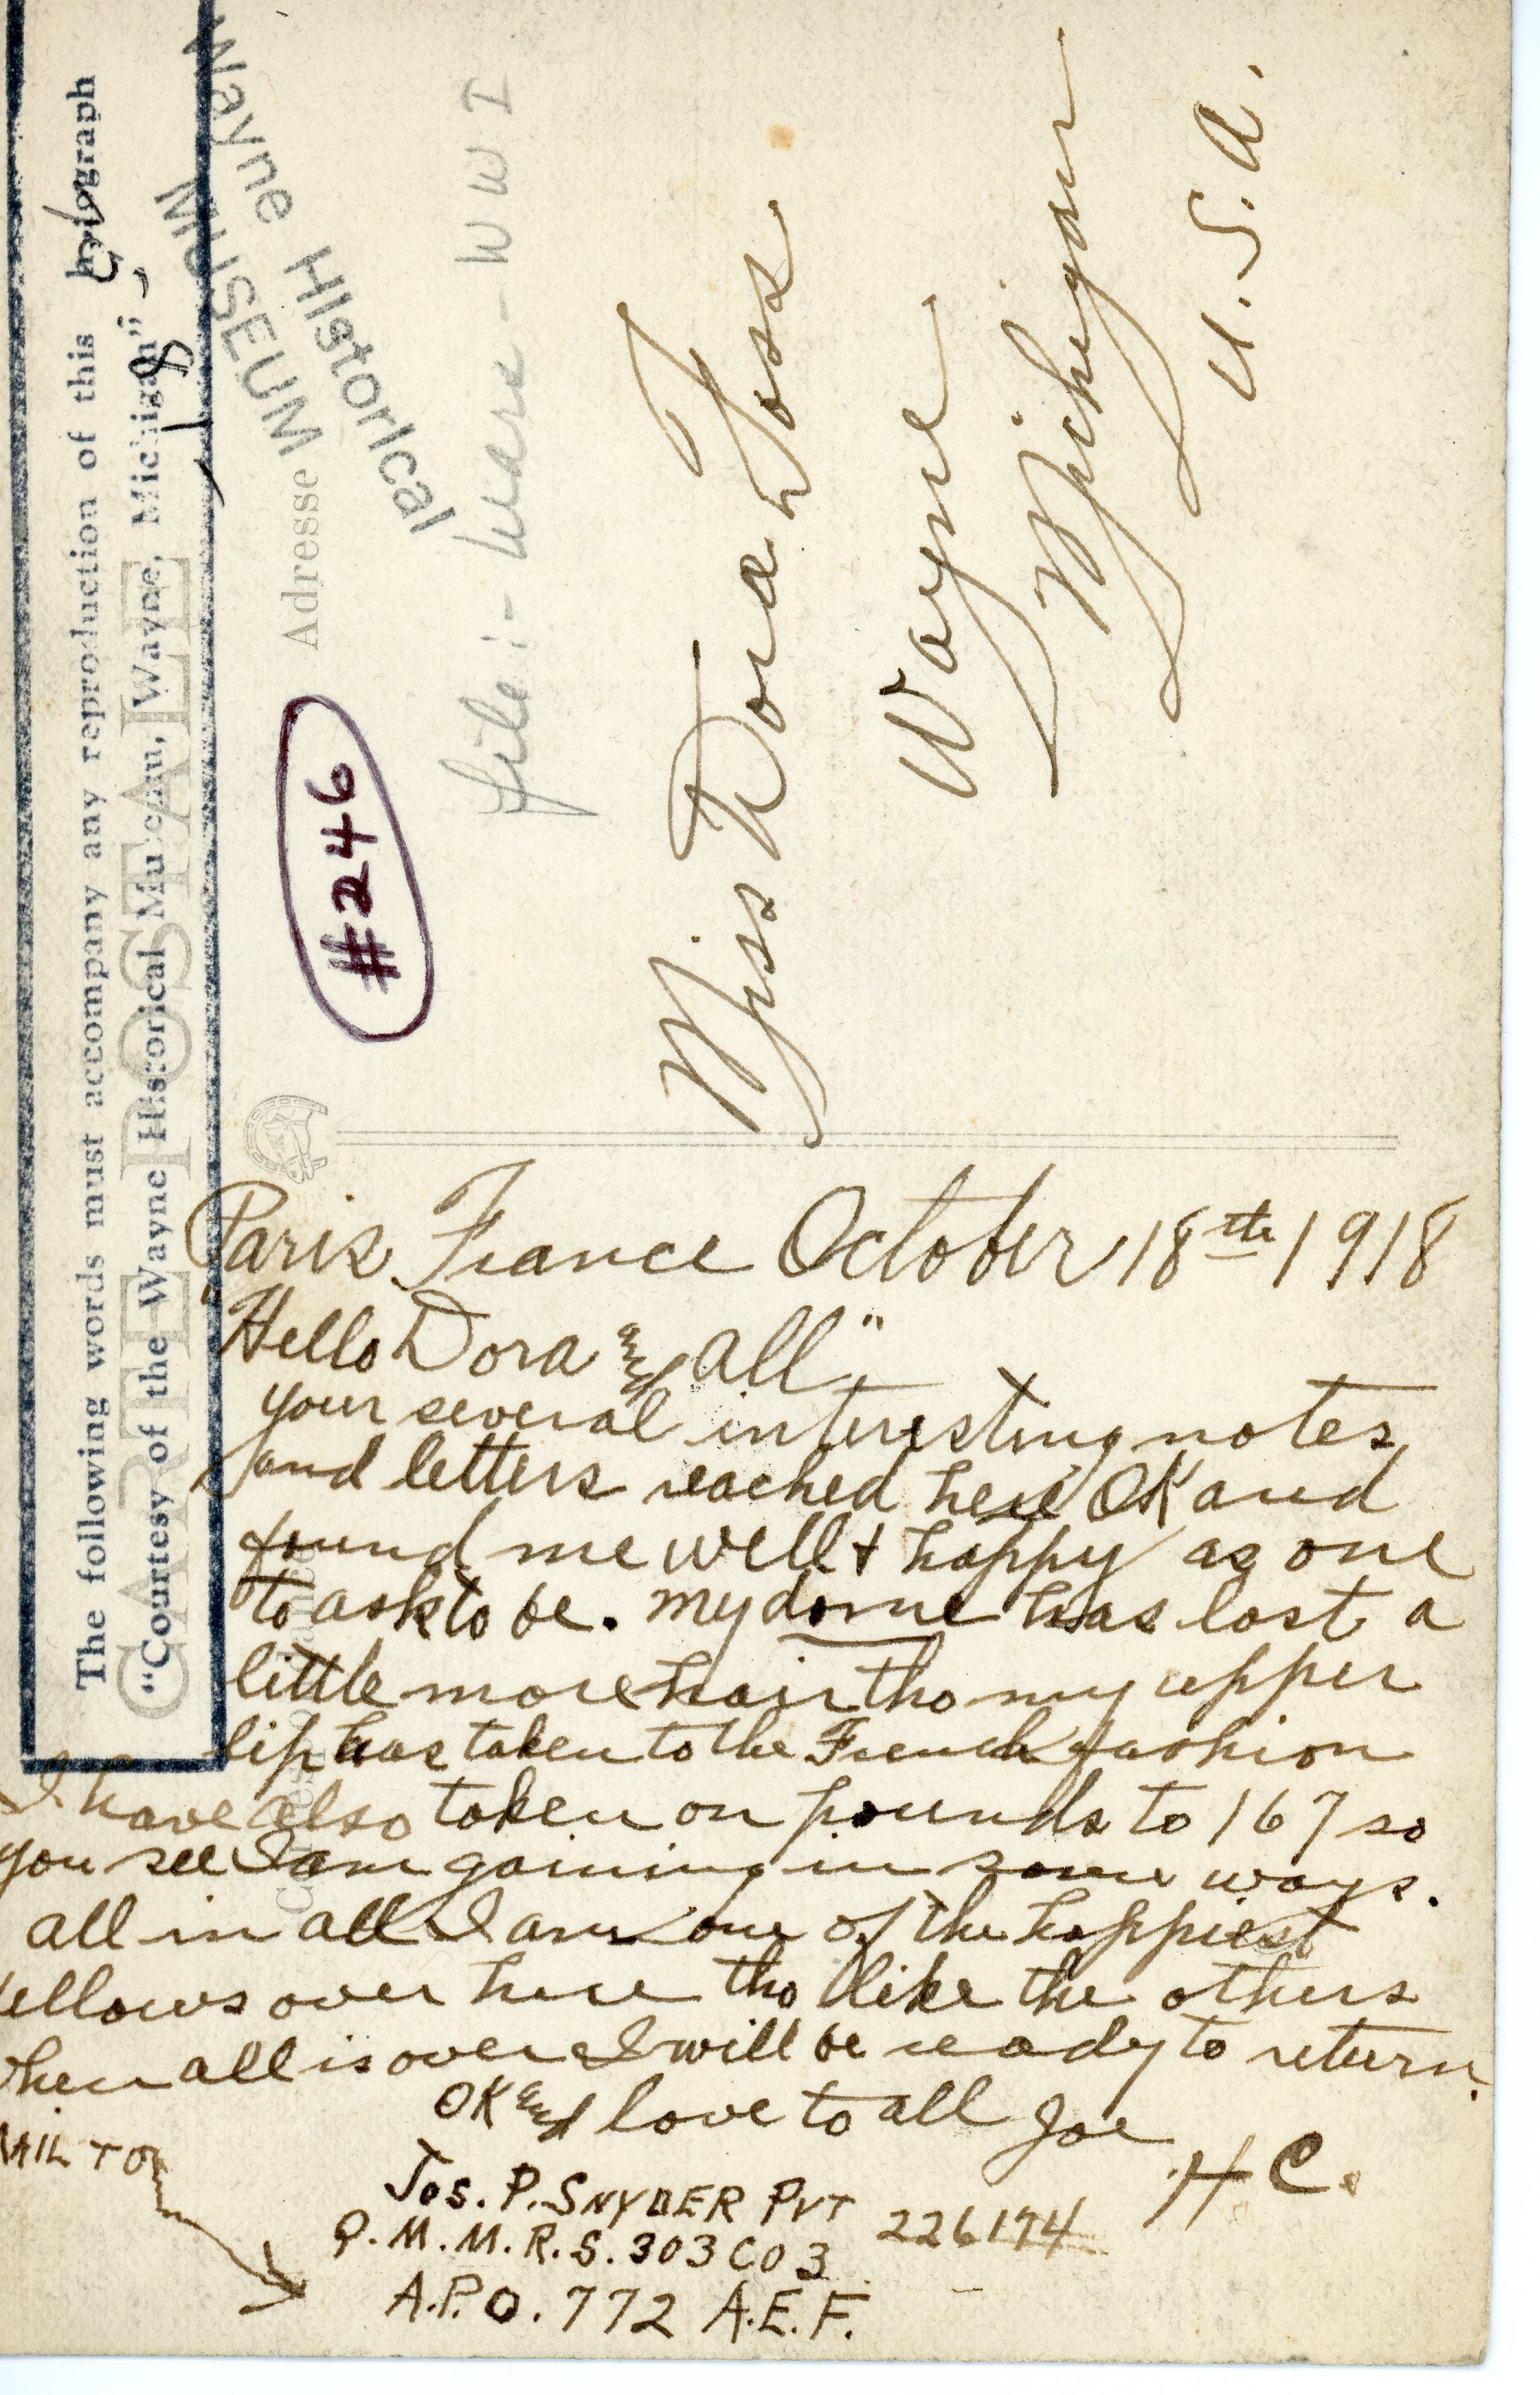 The following words must accompany any reproduction of this
"Courtesy of the Wayne Historical Museum, Wayne, Michigan"
CARTE POSTALE
Wayne Historical
MUSEUM
Adresse
#246
File:- Wars - WWI
Miss Dora Toss
Wayne
Michigan
U.S.A.
Paris, France October 18th 1918
"Hello Dora and all"
your several interesting notes
and letters reached here OK and
found me well + happy as one
to ask to be. my dome has lost a
little more hair tho my upper
lip has taken to the French fashion
I have also taken on pounds to 167 so
you see I am gaining in some ways.
all in all I am one of the happiest
fellows over here tho like the others
when all is over I will be ready to return.
OK and love to all Joe
H C.
MAIL TO
Jos. P. SNYDER PVT
226174
Q.M.M.R.S. 303 CO 3
A.P.O. 772 A.E.F.